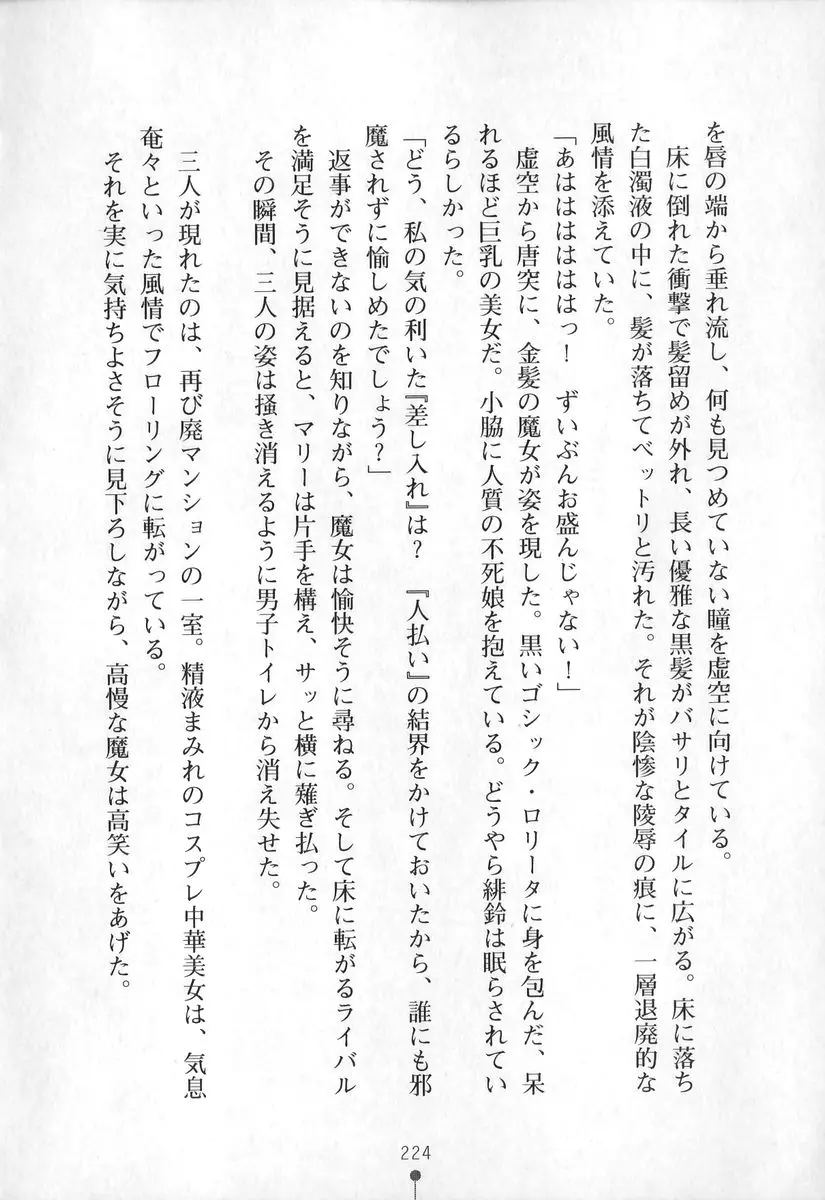 を唇の端から垂れ流し、何も見つめていない瞳を虚空に向けている。
　床に倒れた衝撃で髪留めが外れ、長い優雅な黒髪がバサリとタイルに広がる。床に落ち
た白濁液の中に、髪が落ちてベットリと汚れた。それが陰惨な陵辱の痕に、一層退廃的な
風情を添えていた。
「あはははははっ！　ずいぶんお盛んじゃない！」
　虚空から唐突に、金髪の魔女が姿を現した。黒いゴシック・ロリータに身を包んだ、呆
れるほど巨乳の美女だ。小脇に人質の不死娘を抱えている。どうやら緋鈴は眠らされてい
るらしかった。
「どう、私の気の利いた『差し入れ』は？　『人払い』の結界をかけておいたから、誰にも邪
魔されずに愉しめたでしょう？」
　返事ができないのを知りながら、魔女は愉快そうに尋ねる。そして床に転がるライバル
を満足そうに見据えると、マリーは片手を構え、サッと横に薙ぎ払った。
　その瞬間、三人の姿は掻き消えるように男子トイレから消え失せた。
　三人が現れたのは、再び廃マンションの一室。精液まみれのコスプレ中華美女は、気息
奄々といった風情でフローリングに転がっている。
　それを実に気持ちよさそうに見下ろしながら、高慢な魔女は高笑いをあげた。
224